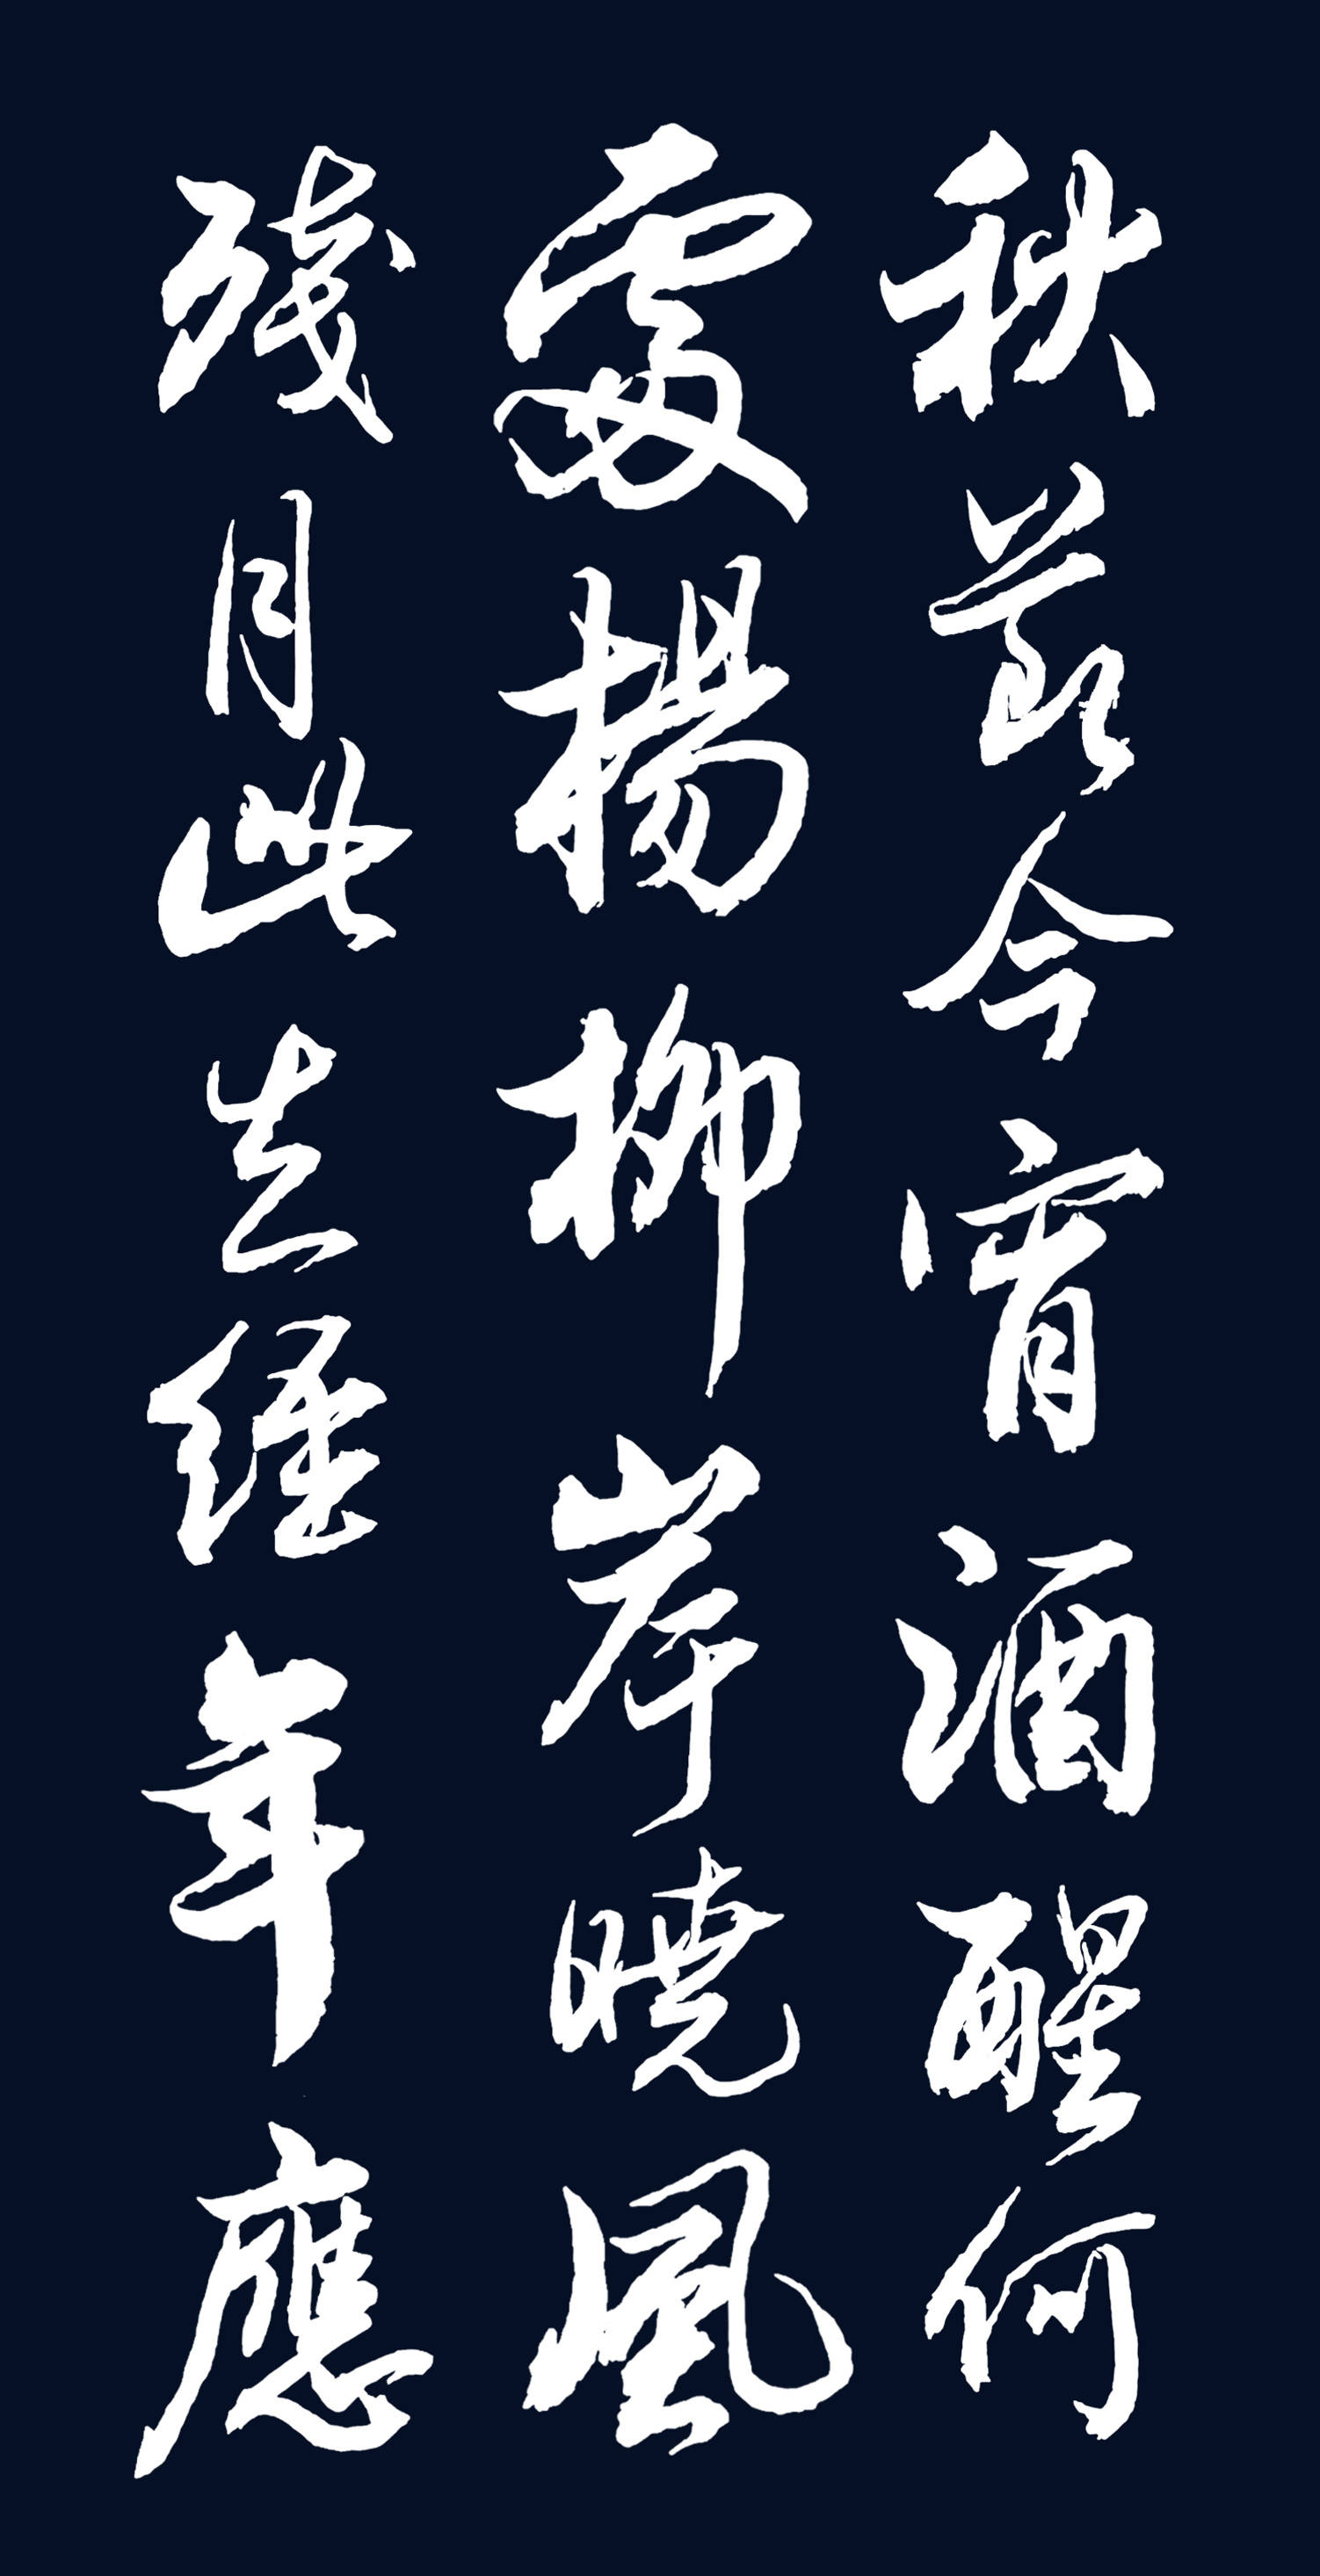 秋節今宵酒醒何
處楊柳岸曉風
殘月此去經年應